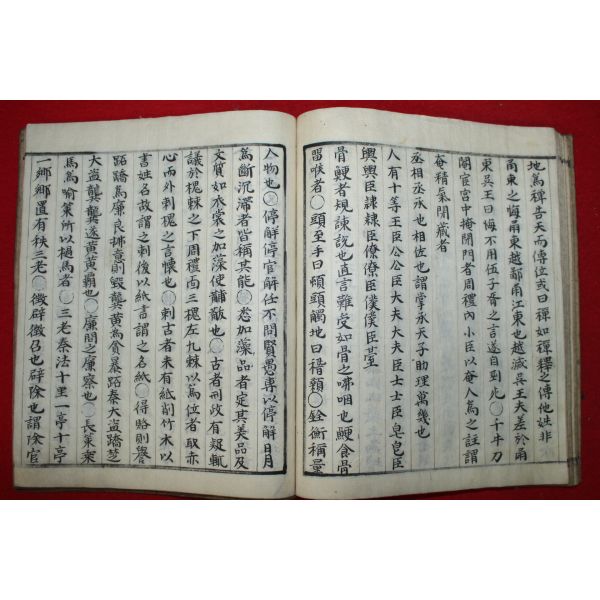 地爲禪吾天而傳位或曰禪如禪釋之傳他姓非
甬東之悔甬東越鄞甬江東也越滅吳王夫差於甬
東吳王曰悔不用伍子胥之言遂自到此〇千牛刀
閹官宮中掩閉門者周禮內小臣以奄人爲之註謂
奄精氣閉藏者
丞相丞承也相佐也謂掌承天子助理萬幾也
人有十等王臣公公臣大夫大夫臣士士臣皂皂臣
輿輿臣隸隸臣僚僚臣僕僕臣㙜
骨鯁者規諫說也直言難受如骨之咈咽也鯁食骨
畱喉者〇頭至手曰頓頭觸地曰稽顙〇銓衡稱量
人物也〇停解停官解任不問賢愚專以停解日月
爲斷沉滯者皆稱其能〇怸加藻品者定其美品及
文質如衣裳之加藻使黼黻也〇古者刑政有疑輒
議於槐棘之下周禮面三槐左九棘以爲位者取赤
心而外刺槐之言懷也〇刺古者未有紙削竹木以
書姓名故謂之刺後以紙書謂之名紙〇得賂則譽
跖蹻爲廉良拂意則毀龔黃爲貪暴跖秦大盜蹻芝
大盜龔龔遂黃黃霸也〇廉問之廉察也〇長策東
馬馬喻策所以撾馬者〇三老秦法十里一亭十亭
一鄉鄕置有秩三老〇徵辟徵召也辟除也謂除官